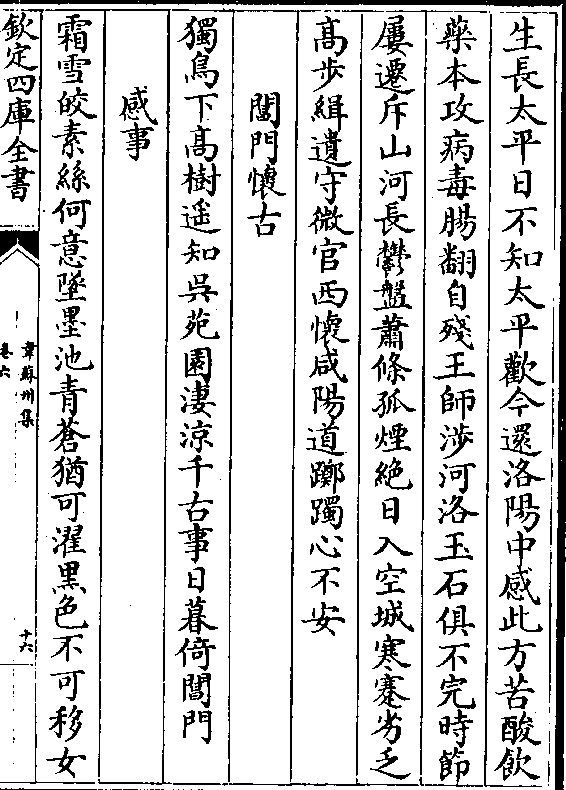 生長太平日不知太平歡今還洛陽中感此方苦酸飲
藥本攻病毒腸翻自殘王師涉河洛玉石俱不完時節
屢遷斥山河長鬱盤蕭條孤煙絶日入空城寒蹇劣乏
高步緝遺守微官西懷咸陽道躑躅心不安
閶門懷古
獨鳥下高樹遥知吳苑園淒涼千古事日暮倚閶門
感事
霜雪皎素絲何意墜墨池青蒼猶可濯黑色不可移女
欽定四庫全書
韋蘇州集
卷六
十六